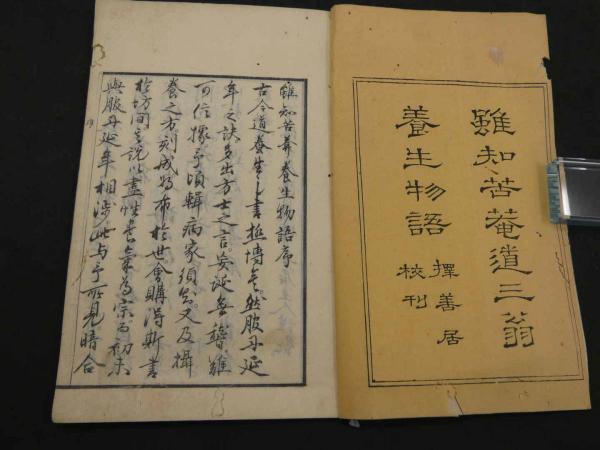 雖知苦菴道三翁
養生物語
擇善居
校刊
雖知苦菴養生物語序
古今道養生之書極博矣然服丹延
年之訣多出方士之言妄誕無稽難
可信據予頃輯病家須知又及攝
養之方刻成將布於世會購得斯書
於坊間其說以盡性長氣為宗而初未
與服丹延年相涉此与予所見暗合